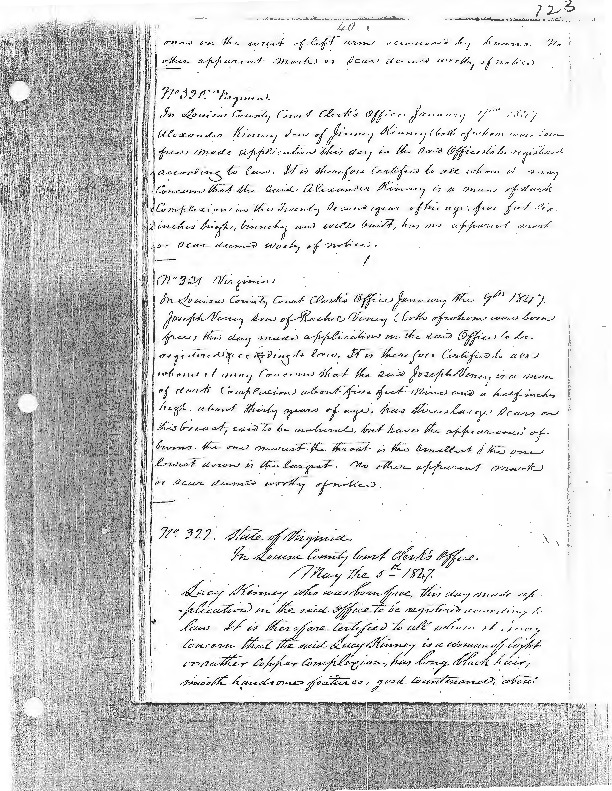 123
40
ones on the wrist of left arm occasioned by burns. No
other apparent Marks or Scar deemed worthy of notice
No 320. Virginia
In Louisa County Court Clerk's Office January 1847
Alexander Kinney Son of Jinney Kinney (both of whom were born
free) made application this day in the said Office to be registered
according to law. It is therefore Certified to all whom it may
Concern that the said Alexander Kinney is a man of dark
Complexion in the Twenty Second year of his age, five feet Six
inches high, bunchy and well built, has no apparent mark
or Scar deemed worthy of notice.
No 321 Virginia
In Louisa County Court Clerk's Office January the 9th 1847.
Joseph Veney Son of Rachel Veney (both of whom were born
free) this day made application in the said Office to be
registered according to law. It is therefore Certified to all
whom it may Concern that the said Joseph Veney is a man
of dark Complexion about five feet Nine and a half inches
high about thirty years of age, has three large Scars on
his breast, said to be natural, but have the appearance of
burns. the one nearest the throat is the Smallest & the one
lowest down is the largest. No other apparent mark
or Scar deemed worthy of notice.
No. 322. State of Virginia
In Louisa County Court Clerk's Office.
May the 5th 1847.
Lucy Kinney who was born free, this day made ap-
plication in the said office to be registered according to
law. It is therefore Certified to all whom it may
concern that the said Lucy Kinney is a woman of light
or rather Copper Complexion, has long black hair,
smooth handsome features, good countenance, about